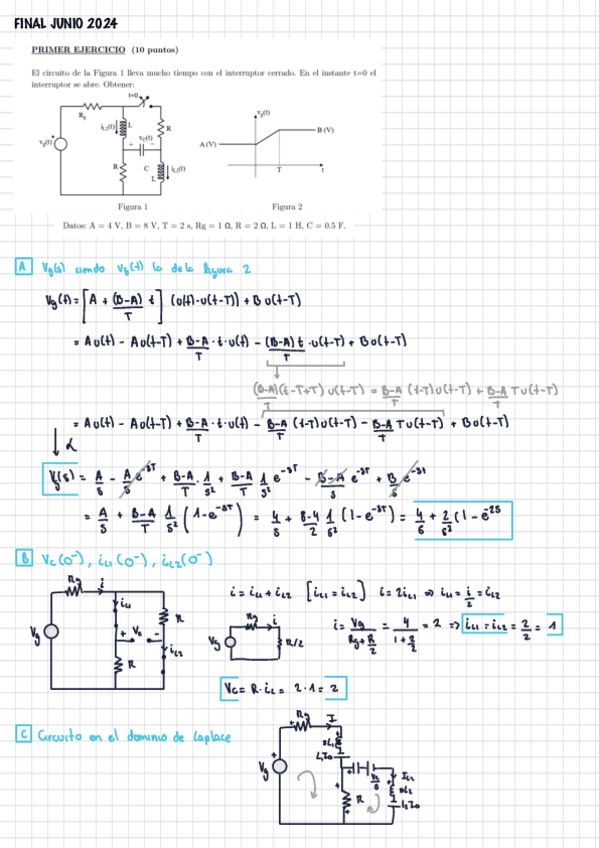 FINAL JUNIO 2024
PRIMER EJERCICIO (10 puntos)
El circuito de la Figura 1 lleva mucho tiempo con el interruptor cerrado. En el instante t=0 el
interruptor se abre. Obtener:
t=0
Rg
iL1(t)
L
R
vg(t)
vC(t)
+
−
R
C
L
iL2(t)
Figura 1
vg(t)
A (V)
B (V)
T
t
Figura 2
Datos: A = 4 V, B = 8 V, T = 2 s, Rg = 1 Ω, R = 2 Ω, L = 1 H, C = 0.5 F.
A Vg(s) siendo vg(t) la de la figura 2
Vg(t) = [A + (B-A)/T t] (u(t)-u(t-T)) + B u(t-T)
= A u(t) - A u(t-T) + B-A/T · t · u(t) - (B-A)t/T · u(t-T) + B u(t-T)
(B-A)/T (t-T+T) u(t-T) = B-A/T (t-T) u(t-T) + B-A/T T u(t-T)
= A u(t) - A u(t-T) + B-A/T · t · u(t) - B-A/T (t-T) u(t-T) - B-A/T T u(t-T) + B u(t-T)
↓ L
Vg(s) = A/s - A/s e^-sT + B-A/T · 1/s² + B-A/T 1/s² e^-sT - B-A/s e^-sT + B/s e^-sT
= A/s + B-A/T 1/s² (1-e^-sT) = 4/s + 8-4/2 1/s² (1-e^-sT) = 4/s + 2/s² (1-e^-2s
B Vc(0⁻), iL1(0⁻), iL2(0⁻)
Rg
i
iL1
R
Vg
+ Vc -
iL2
R
i = iL1 + iL2 [iL1 = iL2] i = 2iL1 ⇒ iL1 = i/2 = iL2
Rg
i
Vg
R/2
i = Vg/(Rg + R/2) = 4/(1 + 2/2) = 2 ⇒ iL1 = iL2 = 2/2 = 1
Vc = R · iL = 2·1 = 2
C Circuito en el dominio de Laplace
Rg
I
sL1
L1I0
Vg
Vc/s
R
IL2
sL2
L2I0